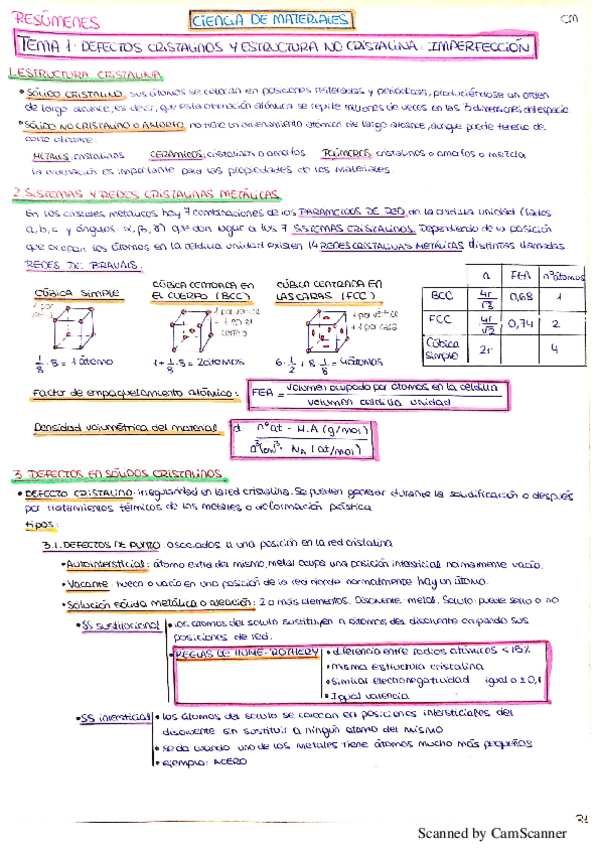 RESÚMENES
CIENCIA DE MATERIALES
CM
TEMA 1: DEFECTOS CRISTALINOS Y ESTRUCTURA NO CRISTALINA: IMPERFECCIÓN
1. ESTRUCTURA CRISTALINA
• SÓLIDO CRISTALINO: sus átomos se colocan en posiciones reiteradas y periódicas, produciéndose un orden
de largo alcance, es decir, que esta ordenación atómica se repite millones de veces en las 3 dimensiones del espacio
• SÓLIDO NO CRISTALINO O AMORFO: no tiene un ordenamiento atómico de largo alcance, aunque puede tenerlo de
corto alcance.
METALES: cristalinos CERÁMICOS: cristalinos o amorfos POLÍMEROS: cristalinos o amorfos o mezcla
La ordenación es importante para las propiedades de los materiales.
2. SISTEMAS Y REDES CRISTALINAS METÁLICAS
En los cristales metálicos hay 7 combinaciones de los PARÁMETROS DE RED en la celdilla unidad (lados
a, b, c y ángulos: α, β, γ) que dan lugar a los 7 SISTEMAS CRISTALINOS. Dependiendo de la posición
que ocupan los átomos en la celdilla unidad existen 14 REDES CRISTALINAS METÁLICAS distintas llamadas
REDES DE BRAVAIS.
CÚBICA SIMPLE
1 por
1/8 · 8 = 1 átomo
CÚBICA CENTRADA EN
EL CUERPO (BCC)
1 por vértice
1 en el
centro
1 + 1/8 · 8 = 2 átomos
CÚBICA CENTRADA EN
LAS CARAS (FCC)
1 por vértice
1 por cara
6 · 1/2 + 8 · 1/8 = 4 átomos
a FEA nº átomos
BCC 4r/√3 0,68 1
FCC 4r/√2 0,74 2
Cúbica simple 2r 4
Factor de empaquetamiento atómico: FEA = volumen ocupado por átomos en la celdilla / volumen celdilla unidad
Densidad volumétrica del material d nº at - M.A (g/mol) / a³ (cm³ · NA (at/mol)
3. DEFECTOS EN SÓLIDOS CRISTALINOS
• DEFECTO CRISTALINO: irregularidad en la red cristalina. Se pueden generar durante la solidificación o después
por tratamientos térmicos de los metales o deformación plástica
tipos:
3.1. DEFECTOS DE PUNTO: asociados a una posición en la red cristalina
• Autointersticial: átomo extra del mismo metal ocupa una posición intersticial normalmente vacía.
• Vacante: hueco o vacío en una posición de la red donde normalmente hay un átomo.
• Solución sólida metálica o aleación: 2 o más elementos. Disolvente: metal. Soluto: puede serlo o no
• SS sustitucional
• los átomos del soluto sustituyen a átomos del disolvente ocupando sus
posiciones de red.
• REGLAS DE HUME-ROTHERY
• diferencia entre radios atómicos < 15%
• misma estructura cristalina
• Similar electronegatividad igual o ± 0,1
• Igual valencia
• SS intersticial
• los átomos del soluto se colocan en posiciones intersticiales del
disolvente sin sustituir a ningún átomo del mismo
• se da cuando uno de los metales tiene átomos mucho más pequeños
• ejemplo: ACERO
Scanned by CamScanner